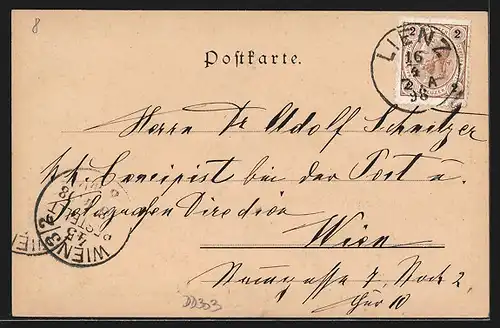 8
Postkarte.
2 2
LIENZ
16
4
98
A
2 2
Herrn Dr Adolf Schnitzer
k.k. Concipist bei der Post u.
Telegrafen Direction
Wien
gasse 7, Stock 2,
Thür 10
WIEN 3/2
BESTELLT
DD303